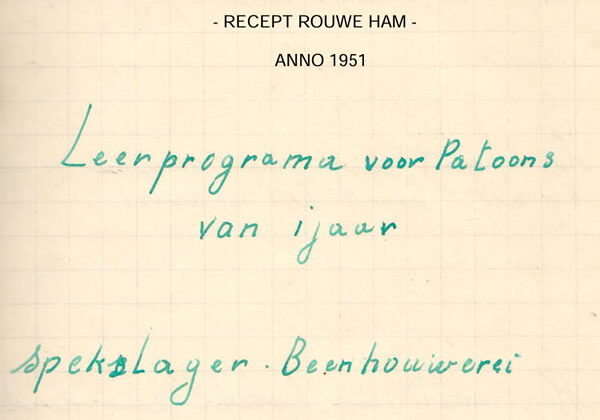 - RECEPT ROUWE HAM -
ANNO 1951
Leerprograma voor Patoons
van ijaar
Spekslager. Beenhouwerei